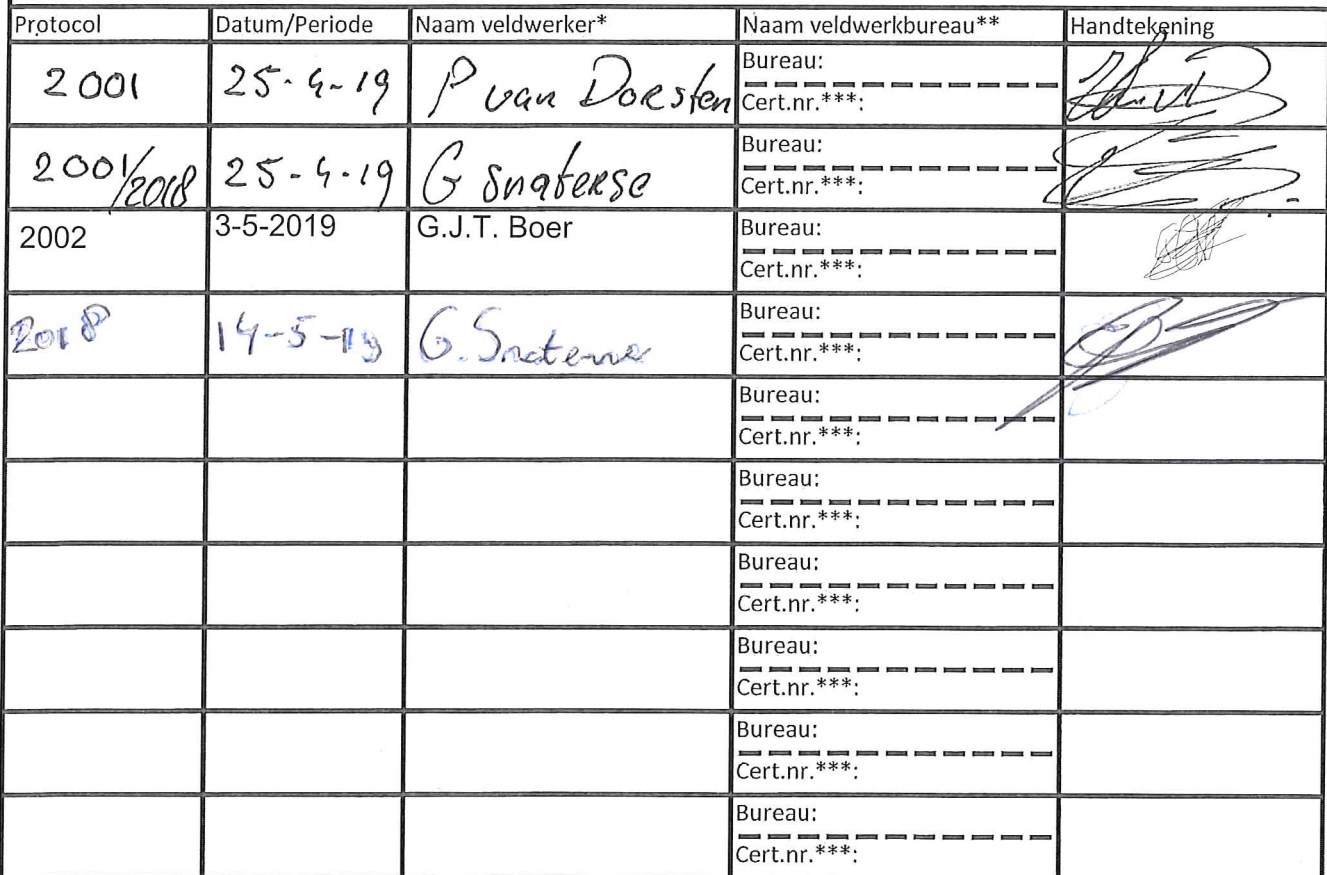 Protocol Datum/Periode Naam veldwerker* Naam veldwerkbureau** Handtekening
2001 25-4-19 P van Doesten Bureau:
Cert.nr.***:
2001/2018 25-4-19 G Snaterse Bureau:
Cert.nr.***:
2002 3-5-2019 G.J.T. Boer Bureau:
Cert.nr.***:
2018 14-5-19 G. Snaterse Bureau:
Cert.nr.***:
Bureau:
Cert.nr.***:
Bureau:
Cert.nr.***:
Bureau:
Cert.nr.***:
Bureau:
Cert.nr.***:
Bureau:
Cert.nr.***:
Bureau:
Cert.nr.***: